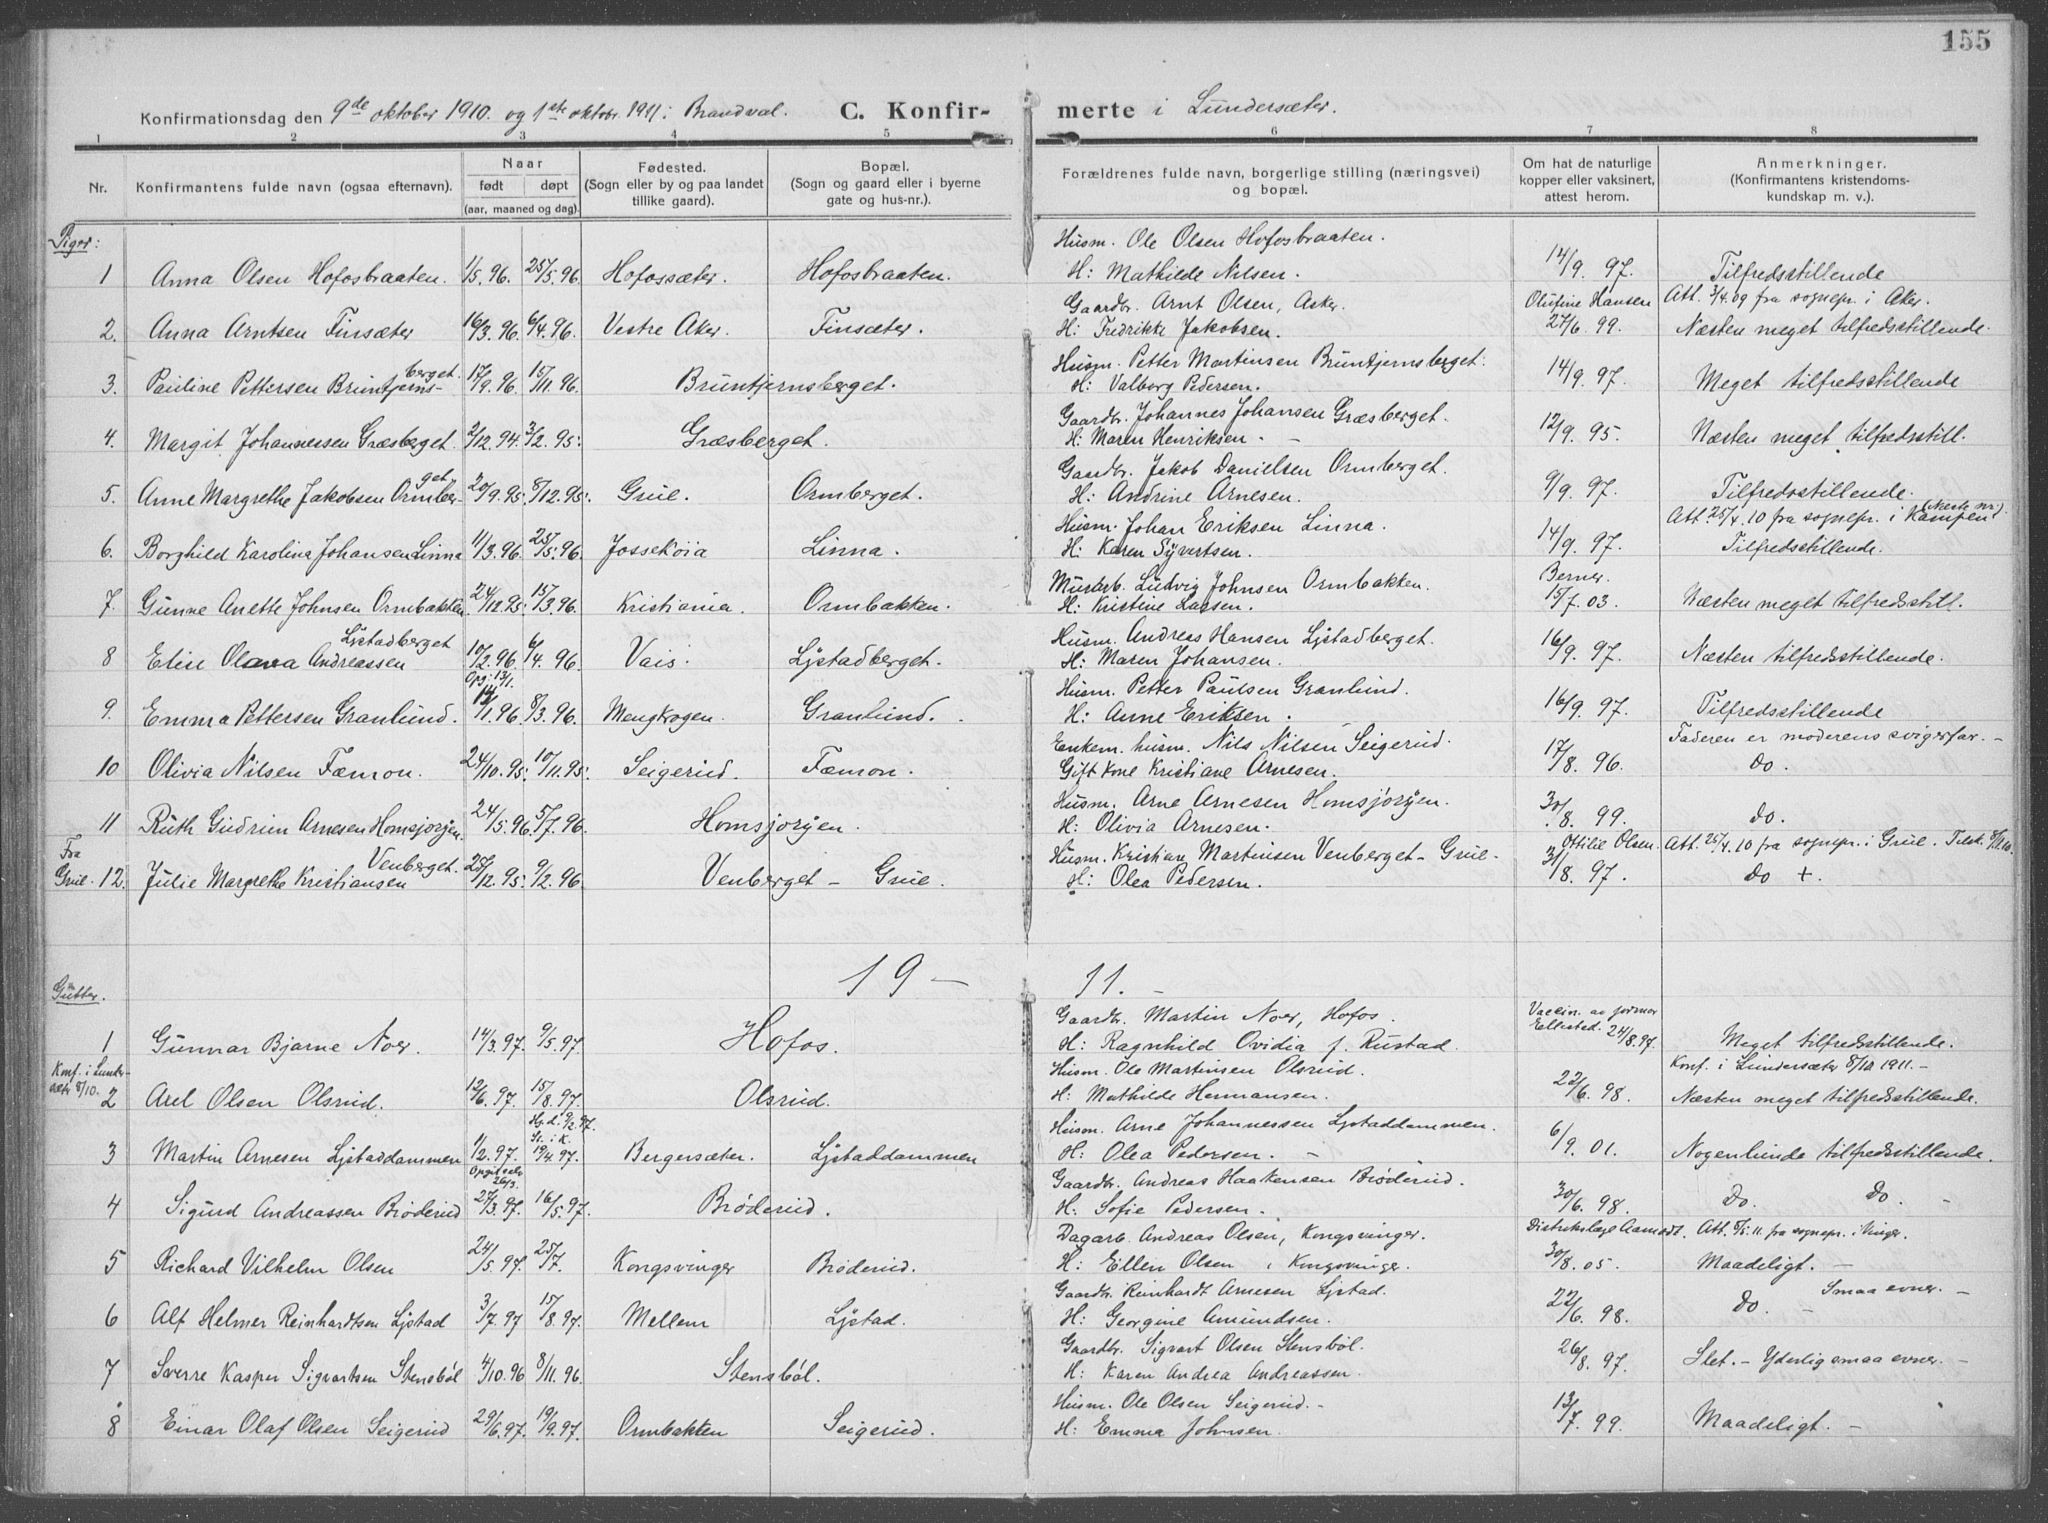 155
Konfirmationsdag den 9de oktober 1910. og 1ste oktobr. 1911 i Brandval. C. Konfirmerte i Lundersæter.
1 2 3 4 5 6 7 8
Nr. Konfirmantens fulde navn (ogsaa efternavn). Naar født døpt (aar, maaned og dag). Fødested. (Sogn eller by og paa landet tillike gaard). Bopæl. (Sogn og gaard eller i byerne gate og hus-nr.). Forældrenes fulde navn, borgerlige stilling (næringsvei) og bopæl. Om hat de naturlige kopper eller vaksinert, attest herom. Anmerkninger. (Konfirmantens kristendoms-kundskap m. v.).
Piger:
Husm. Ole Olsen Hofosbraaten.
1 Anna Olsen Hofosbraaten. 1/5.96. 25/5.96. Hofossæter. Hofosbraaten. H: Mathilde Nilsen. 14/9. 97. Tilfredsstillende
Gaardbr. Arnt Olsen, Asker. Olufine Hansen Att. 3/4.09 fra sognepr. i Aker.
2. Anna Arntsen Finsæter 16/3.96. 6/4.96. Vestre Aker. Finsæter. H: Fredrikke Jakobsen. 27/6. 99. Næsten meget tilfredsstillende.
berget. Husm. Petter Martinsen Bruntjernsberget.
3. Pauline Pettersen Bruntjerns- 17/9.96. 15/11.96. Bruntjernsberget. H: Valborg Pedersen. 14/9. 97. Meget tilfredsstillende
Gaardbr. Johannes Johansen Græsberget.
4. Margit Johannessen Græsberget. 2/12.94. 3/2.95. Græsberget. H: Maren Henriksen. - 12/9. 95. Næsten meget tilfredsstill.
get. Gaardbr. Jakob Danielsen Ormberget.
5. Anne Margrethe Jakobsen Ormber- 20/9.95. 8/12.95. Grue. Ormberget. H: Andrine Arnesen. 9/9. 97. Tilfredsstillende.
Husm. Johan Eriksen Linna. Att. 25/4.10 fra sognepr. i Kampen (Næste nr.).
6. Borghild Karolina Johansen Linna 11/3.96. 25/5.96. Jossekøia Linna. H: Karen Syvertsen. 14/9. 97. Tilfredsstillende.
Murarb. Ludvig Johnsen Ormbakken. Berner.
7. Gunne Anette Johnsen Ormbakken. 24/12.95. 15/3.96. Kristiania. Ormbakken. H: Kristine Larsen. 15/7. 03. Næsten meget tilfredsstill.
Ljstadberget Husm. Andreas Hansen Ljstadberget.
8 Elise Olava Andreassen 10/2.96. 6/4.96. Vais. Ljstadberget. H: Maren Johansen. 16/9. 97. Næsten tilfredsstillende.
Opg. 13/1. Husm. Petter Paulsen Granlund.
9. Emma Pettersen Granlund. 14/1.96. 8/3.96. Mengkrogen. Granlund. H: Anne Eriksen. 16/9. 97. Tilfredsstillende
Enkem. husm. Nils Nilsen Seigerud. Faderen er moderens svigerfar. -
10 Olivia Nilsen Fæmon. 24/10.95. 10/11.95. Seigerud. Fæmon. Gift kone Kristiane Arnesen. 17/8. 96. Do.
Husm. Arne Arnesen Homsjøryen.
11 Ruth Gudrun Arnesen Homsjøryen. 24/5.96. 5/7.96. Homsjøryen. H: Olivia Arnesen. 30/8. 99. Do.
Fra Venberget. Husm. Kristian Martinsen Venberget - Grue. Ottilie Olsen. Att. 25/4.10 fra sognepr. i Grue.
Grue. 12. Julie Margrethe Kristiansen 25/12.95. 9/2.96. Venberget - Grue. H: Olea Pedersen. 31/8. 97. Do +.
19 - 11. -
Gutter.
Gaardbr. Martin Noer, Hofos. Vaccin. av jormor
1 Gunnar Bjarne Noer. 14/3.97. 9/5.97. Hofos. H: Ragnhild Ovidia f. Rustad. Ellestad. 24/8.97. Meget tilfredsstillende.
Konf. i Lunder- Husm. Ole Martinsen Olsrud. Konf. i Lundersæter 8/10 1911. -
sæter 8/10. 2 Axel Olsen Olsrud. 12/6.97. 15/8.97. Olsrud. H: Mathilde Hermansen. 22/6. 98. Næsten meget tilfredsstillende.
Hj.d. 9/2.97. St. i K. Husm. Arne Johannessen Ljstaddammen.
3 Martin Arnesen Ljstaddammen 1/2.97. 19/4.97. Bergersæter. Ljstaddammen H: Olea Pedersen. - 6/9. 01. Nogenlunde tilfredsstillende.
26/3. Gaardbr. Andreas Haakensen Brøderud.
4 Sigurd Andreassen Brøderud 27/3.97. 16/5.97. Brøderud. H: Sofie Pedersen. 30/6. 98. Do. Do. -
Dagarb. Andreas Olsen, Kongsvinger. Distriktslæge Aamodt. Att. 8/5.11 fra sognepr. i Vinger.
5 Richard Vilhelm Olsen 24/5.97. 25/7. Kongsvinger Brøderud. H: Ellen Olsen i Kongsvinger. 30/8. 05. Maadeligt. -
Gaardbr. Reinhardt Arnesen Ljstad. Smaa evner. -
6 Alf Helmer Reinhardtsen Ljstad 3/7.97 15/8.97. Mellem Ljstad. H: Georgine Amundsen. 22/6. 98. Do. -
Gaardbr. Sigvart Olsen Stensbøl.
7 Sverre Kasper Sigvartsen Stensbøl 4/10.96 8/11.96. Stensbøl. H: Karen Andrea Andreassen. 26/8. 97. Slet. - Yderlig smaa evner. -
Husm. Ole Olsen Seigerud. -
8 Einar Olaf Olsen Seigerud 29/6.97. 19/9.97. Ormbakken Seigerud. H: Emma Johnsen. 13/7. 99. Maadeligt. -